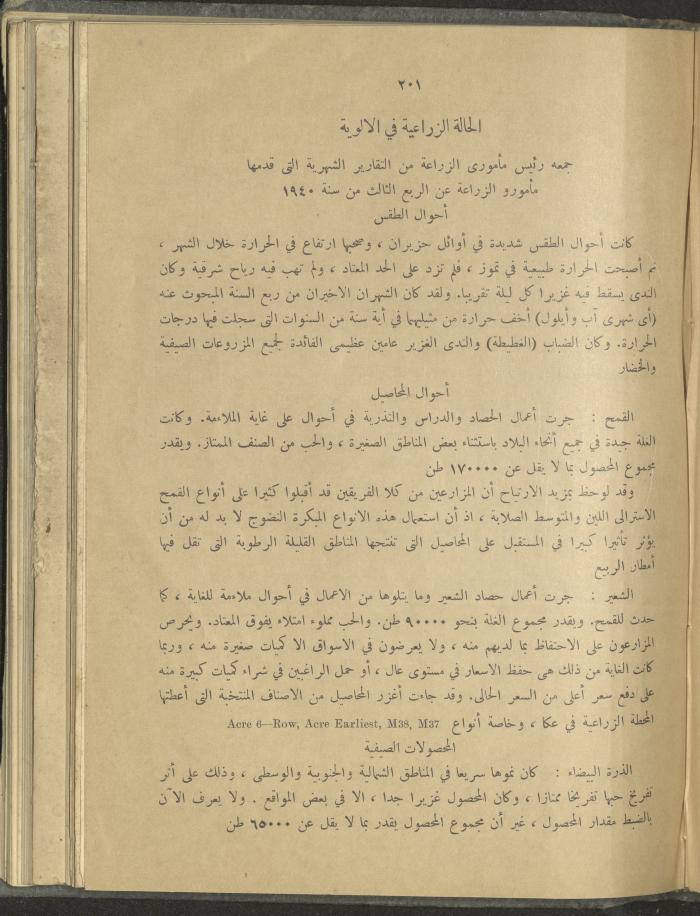 ٢٠١
الحالة الزراعية في الالوية
جمعه رئيس مأموري الزراعة من التقارير الشهرية التي قدمها
مأمورو الزراعة عن الربع الثالث من سنة ١٩٤٠
أحوال الطقس
كانت أحوال الطقس شديدة في أوائل حزيران ، وصحبها ارتفاع في الحرارة خلال الشهر ،
ثم أصبحت الحرارة طبيعية في تموز ، فلم تزد على الحد المعتاد ، ولم تهب فيه رياح شرقية وكان
الندى يسقط فيه غزيرا كل ليلة تقريبا. ولقد كان الشهران الاخيران من ربع السنة المبحوث عنه
(أى شهرى آب وأيلول) أخف حرارة من مثيليهما في أية سنة من السنوات التي سجلت فيها درجات
الحرارة. وكان الضباب (الغطيطة) والندى الغزير عامين عظيمى الفائدة لجميع المزروعات الصيفية
والخضار
أحوال المحاصيل
القمح : جرت أعمال الحصاد والدراس والتذرية في أحوال على غاية الملاءمة. وكانت
الغلة جيدة في جميع أنحاء البلاد باستثناء بعض المناطق الصغيرة ، والحب من الصنف الممتاز. ويقدر
مجموع المحصول بما لا يقل عن ١٧٠٠٠٠ طن
وقد لوحظ بمزيد الارتياح أن المزارعين من كلا الفريقين قد أقبلوا كثيرا على أنواع القمح
الاسترالى اللين والمتوسط الصلابة ، اذ أن استعمال هذه الانواع المبكرة النضوج لا بد له من أن
يؤثر تأثيرا كبيرا في المستقبل على المحاصيل التي تنتجها المناطق القليلة الرطوبة التي تقل فيها
أمطار الربيع
الشعير : جرت أعمال حصاد الشعير وما يتلوها من الاعمال في أحوال ملاءمة للغاية ، كما
حدث للقمح. ويقدر مجموع الغلة بنحو ٩٠٠٠٠ طن. والحب مملوء امتلاء يفوق المعتاد. ويحرص
المزارعون على الاحتفاظ بما لديهم منه ، ولا يعرضون في الاسواق الا كميات صغيرة منه ، وربما
كانت الغاية من ذلك هى حفظ الاسعار في مستوى عال ، أو حمل الراغبين في شراء كميات كبيرة منه
على دفع سعر أعلى من السعر الحالى. وقد جاءت أغزر المحاصيل من الاصناف المنتخبة التي أعطتها
المحطة الزراعية في عكا ، وخاصة أنواع Acre 6—Row, Acre Earliest, M38, M37
المحصولات الصيفية
الذرة البيضاء : كان نموها سريعا في المناطق الشمالية والجنوبية والوسطى ، وذلك على أثر
تفريخ حبها تفريخا ممتازا ، وكان المحصول غزيرا جدا ، الا في بعض المواقع . ولا يعرف الآن
بالضبط مقدار المحصول ، غير أن مجموع المحصول يقدر بما لا يقل عن ٦٥٠٠٠ طن